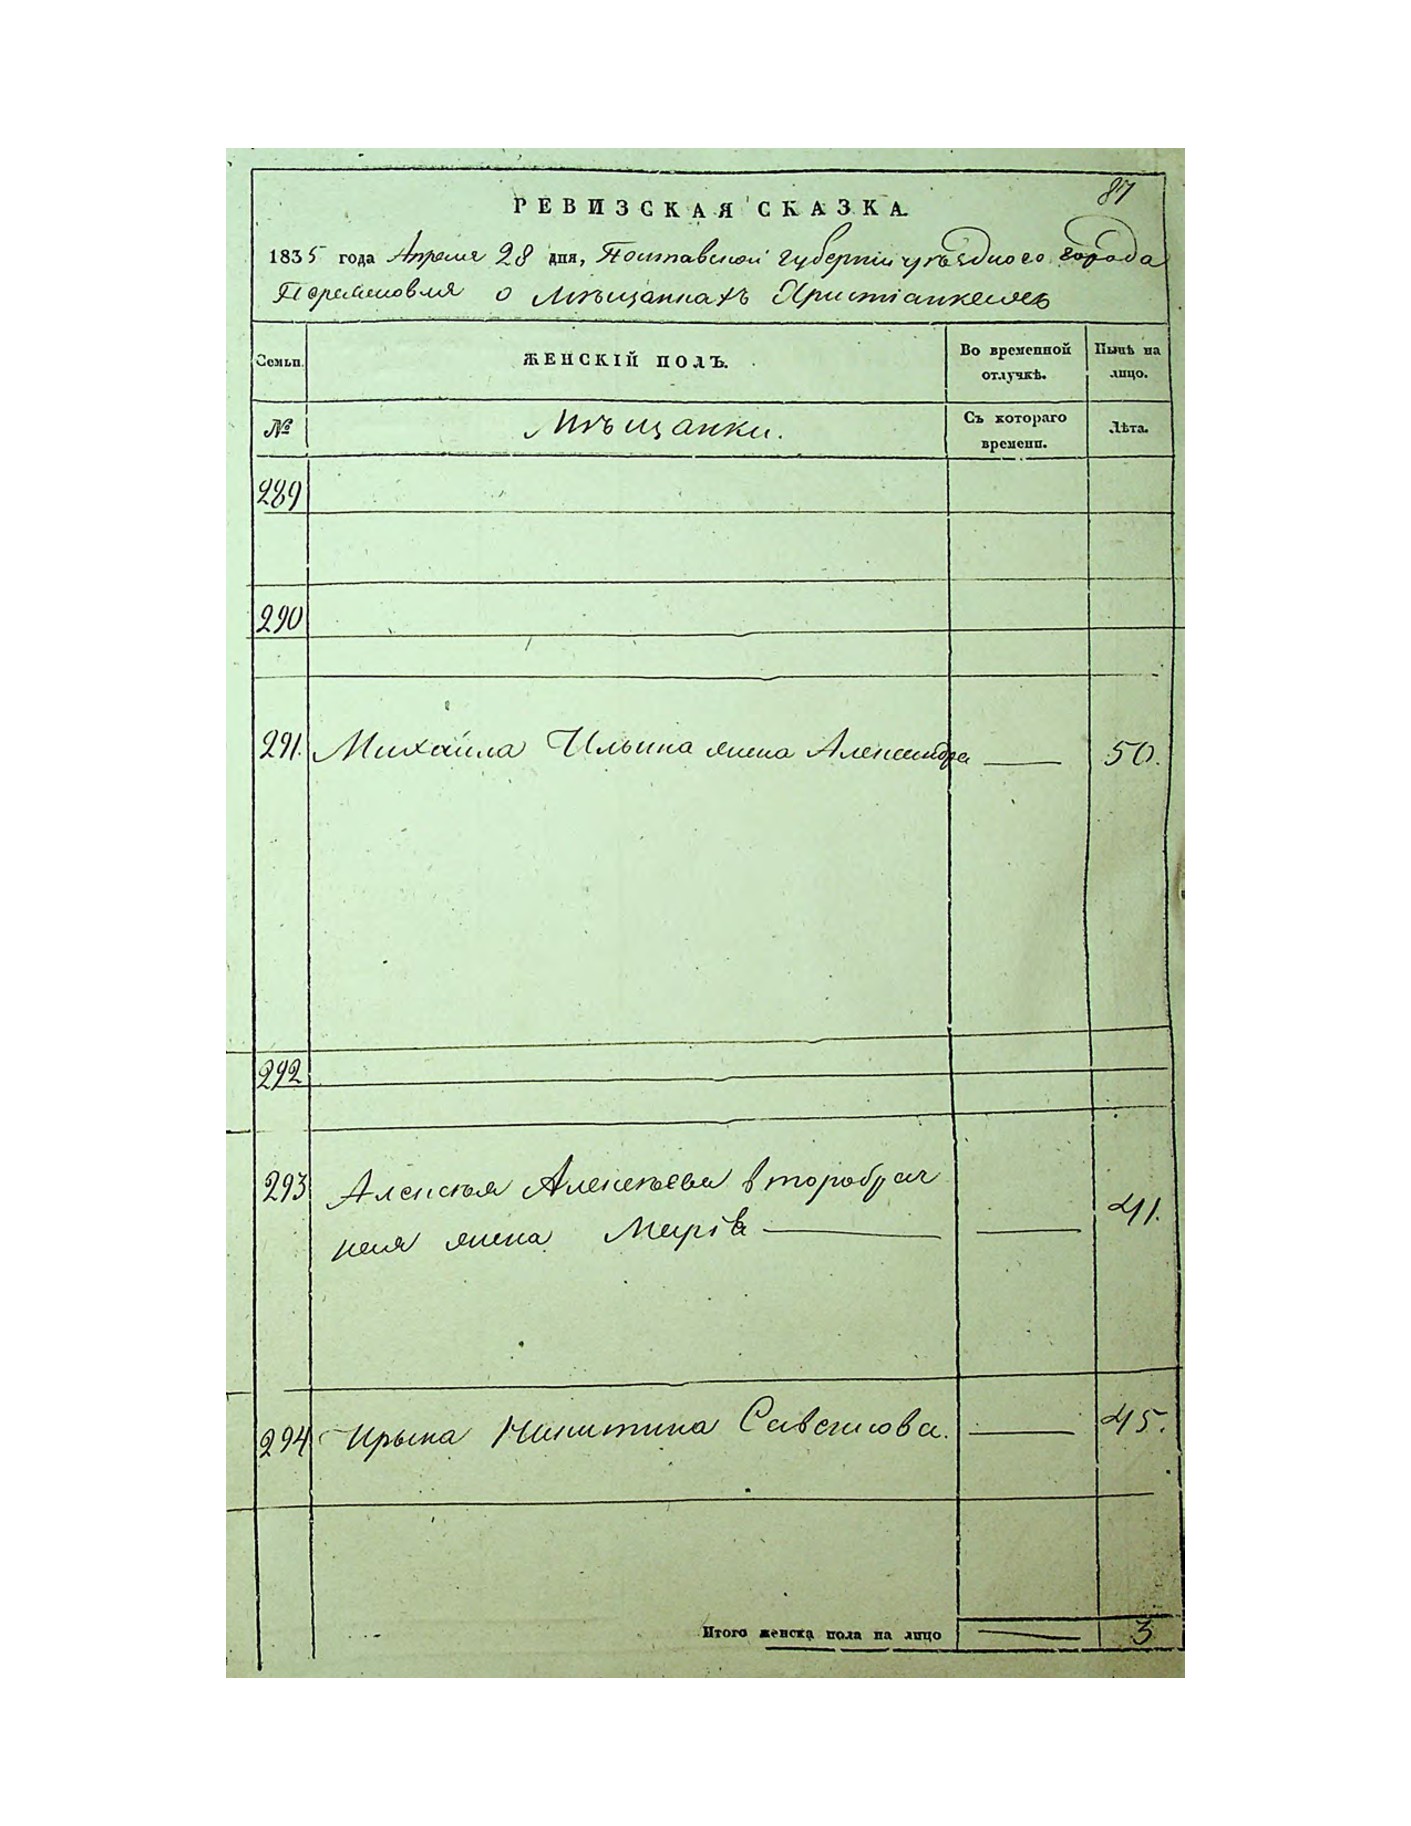 87
РЕВИЗСКАЯ СКАЗКА.
1835 года Апреля 28 дня, Полтавской губерніи уѣзднаго города
о Мѣщанкахъ Христіанкахъ
Семьи.
ЖЕНСКІЙ ПОЛЪ.
Во временной отлучкѣ.
Нынѣ на лицо.
№
Мѣщанки.
Съ котораго времени.
Лѣта.
289
290
291. Михайла Ильина жена Александра — 50.
292
293 Алексѣя Алексѣева второбрач
ная жена Марѳа — — 41.
294 Ирына Никитина Савенкова. — 45.
Итого женска пола на лицо — 3